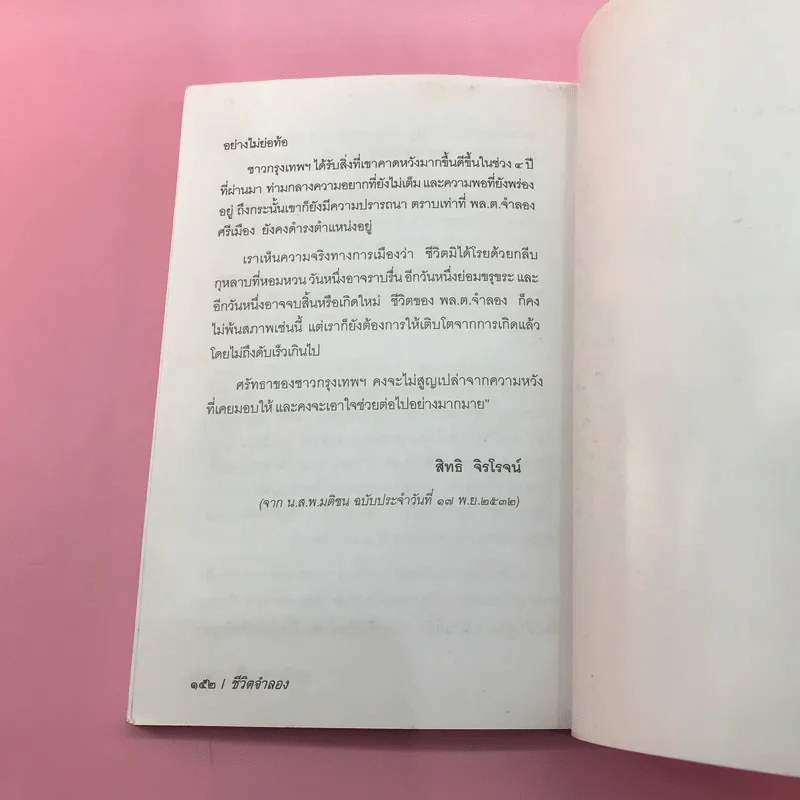 อย่างไม่ย่อท้อ
ชาวกรุงเทพฯ ได้รับสิ่งที่เขาคาดหวังมากขึ้นดีขึ้นในช่วง ๔ ปี
ที่ผ่านมา ท่ามกลางความอยากที่ยังไม่เต็ม และความพอที่ยังพร่อง
อยู่ ถึงกระนั้นเขาก็ยังมีความปรารถนา ตราบเท่าที่ พล.ต.จำลอง
ศรีเมือง ยังคงดำรงตำแหน่งอยู่
เราเห็นความจริงทางการเมืองว่า ชีวิตมิได้โรยด้วยกลีบ
กุหลาบที่หอมหวน วันหนึ่งอาจราบรื่น อีกวันหนึ่งย่อมขรุขระ และ
อีกวันหนึ่งอาจจบสิ้นหรือเกิดใหม่ ชีวิตของ พล.ต.จำลอง ก็คง
ไม่พ้นสภาพเช่นนี้ แต่เราก็ยังต้องการให้เติบโตจากการเกิดแล้ว
โดยไม่ถึงดับเร็วเกินไป
ศรัทธาของชาวกรุงเทพฯ คงจะไม่สูญเปล่าจากความหวัง
ที่เคยมอบให้ และคงจะเอาใจช่วยต่อไปอย่างมากมาย"
สิทธิ จิรโรจน์
(จาก น.ส.พ.มติชน ฉบับประจำวันที่ ๑๗ พ.ย.๒๕๓๒)
๑๕๒ / ชีวิตจำลอง